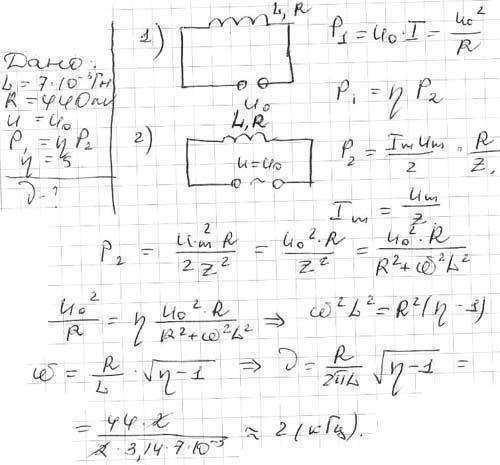 Дано:
L = 7·10⁻³ Гн
R = 44 Ом
u = u₀
P₁ = η P₂
η = 5
ν - ?
1)
L, R
u₀
2)
L, R
u = u₀
~
P₁ = u₀·I = u₀²/R
P₁ = η P₂
P₂ = (Iₘ uₘ)/2 · R/Z,
Iₘ = uₘ/Z.
P₂ = (uₘ² R)/(2 Z²) = (u₀²·R)/Z² = (u₀²·R)/(R²+ω²L²)
u₀²/R = η (u₀²·R)/(R²+ω²L²) ⇒ ω²L² = R²(η-1)
ω = R/L · √(η-1) ⇒ ν = R/(2πL) √(η-1) =
= (44·2)/(2·3,14·7·10⁻³) ≈ 2 (кГц).